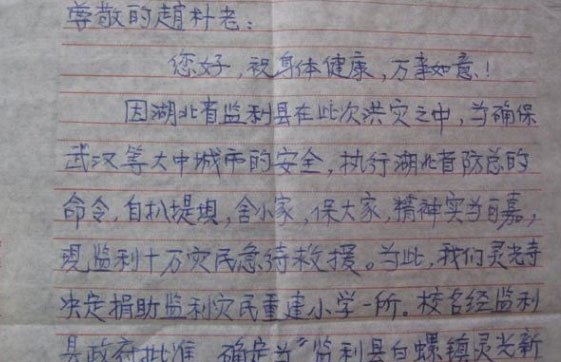 尊敬的趙朴老：
您好，祝身体健康，万事如意！
因湖北省监利县在此次洪灾之中，为确保
武汉等大中城市的安全，执行湖北省防总的
命令，自扒堤坝，舍小家，保大家，精神实为可嘉，
现监利十万灾民急待救援。为此，我们灵光寺
决定捐助监利灾民重建小学一所。校名经监利
县政府批准，确定为“监利县白螺镇灵光新